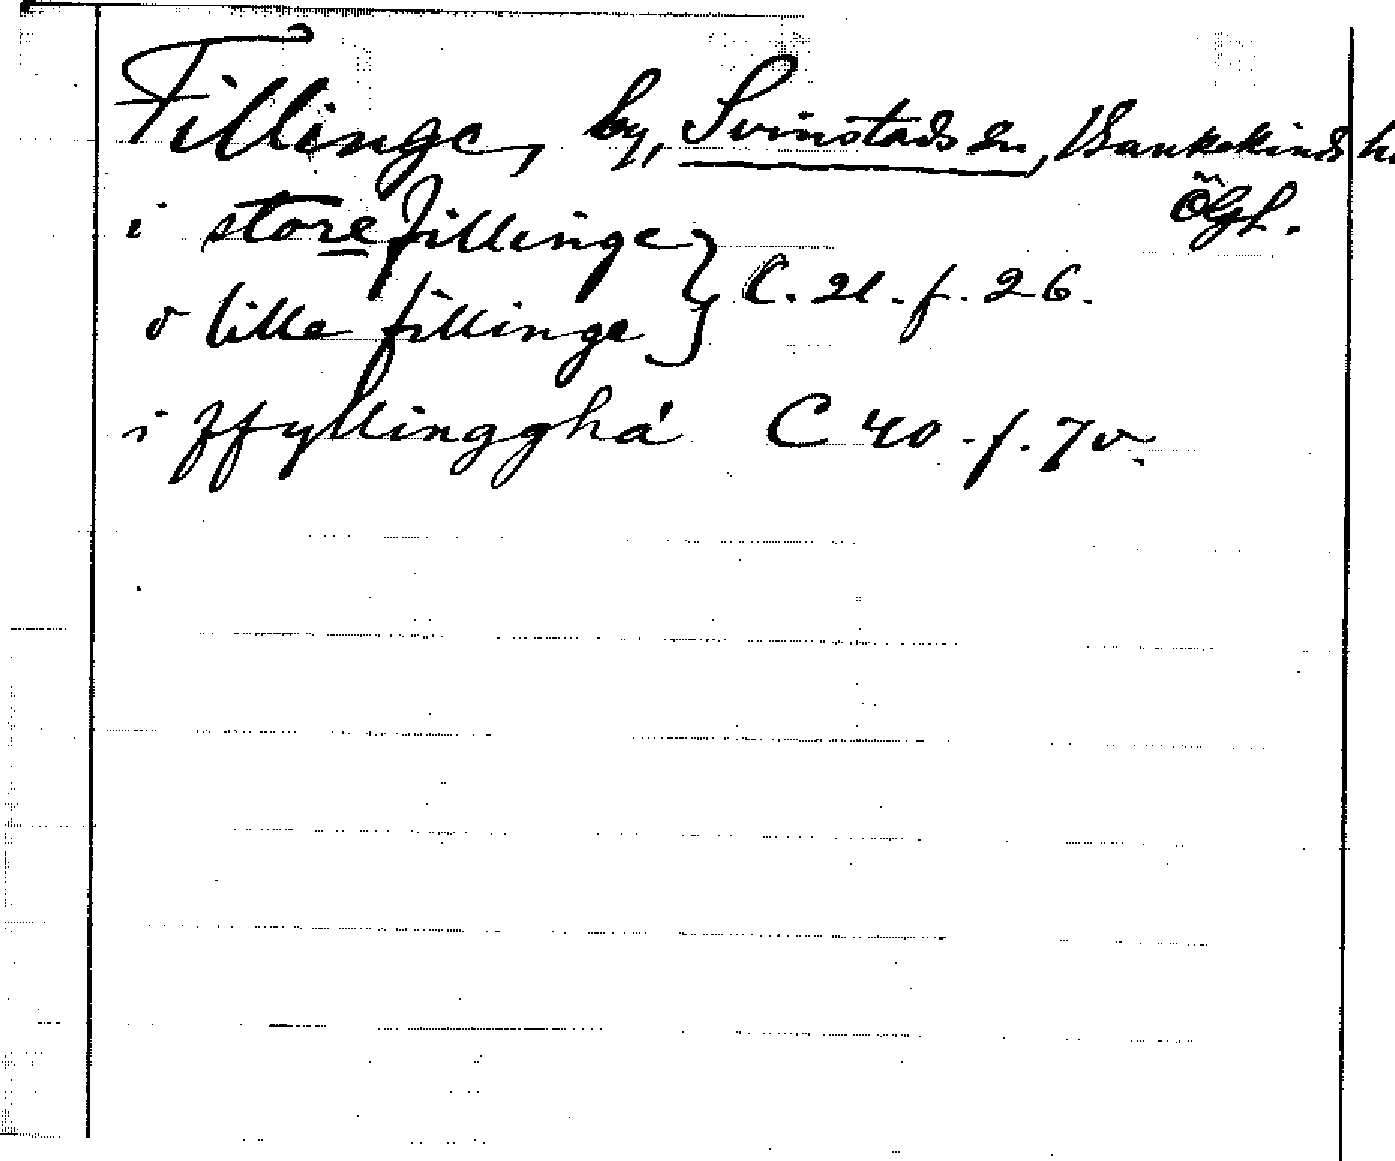 Fillinge, by, Svinstads sn, Bankekinds h
Ögl.
i store fillinge
o lille fillinge } C. 21. f. 26.
i ffyllinggha C 40. f. 7v.